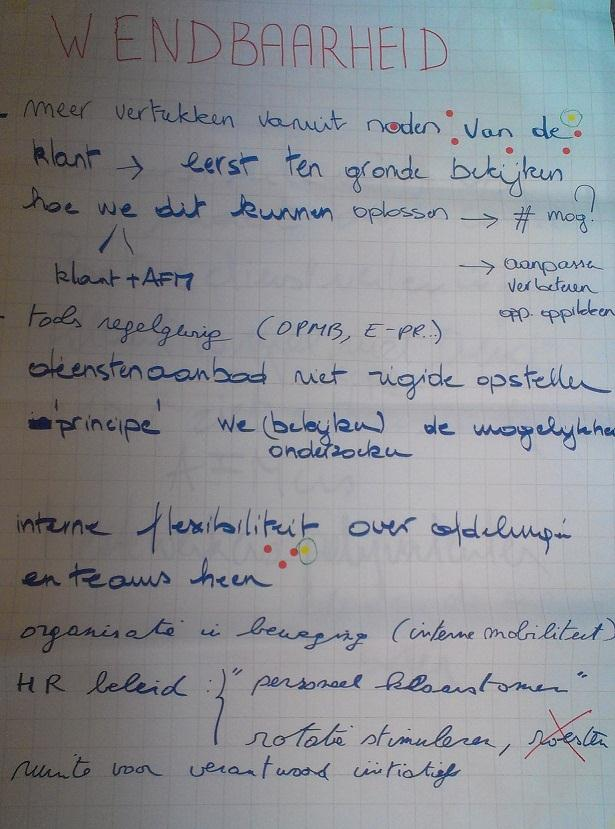 WENDBAARHEID
- meer vertrekken vanuit noden van de
klant → eerst ten gronde bekijken
hoe we dit kunnen oplossen → # mog?
klant + AFM
→ aanpassen
verbeteren
opp. oppikken
- tools regelgeving (OPMB, E-PR..)
dienstenaanbod niet rigide opstellen
'principe' we (bekijken) de mogelijkhe
onderzoeken
interne flexibiliteit over afdelingen
en teams heen
organisatie in beweging (interne mobiliteit)
HR beleid : } "personeel klaarstomen"
rotatie stimuleren, roesten
ruimte voor verantwoord initiatief